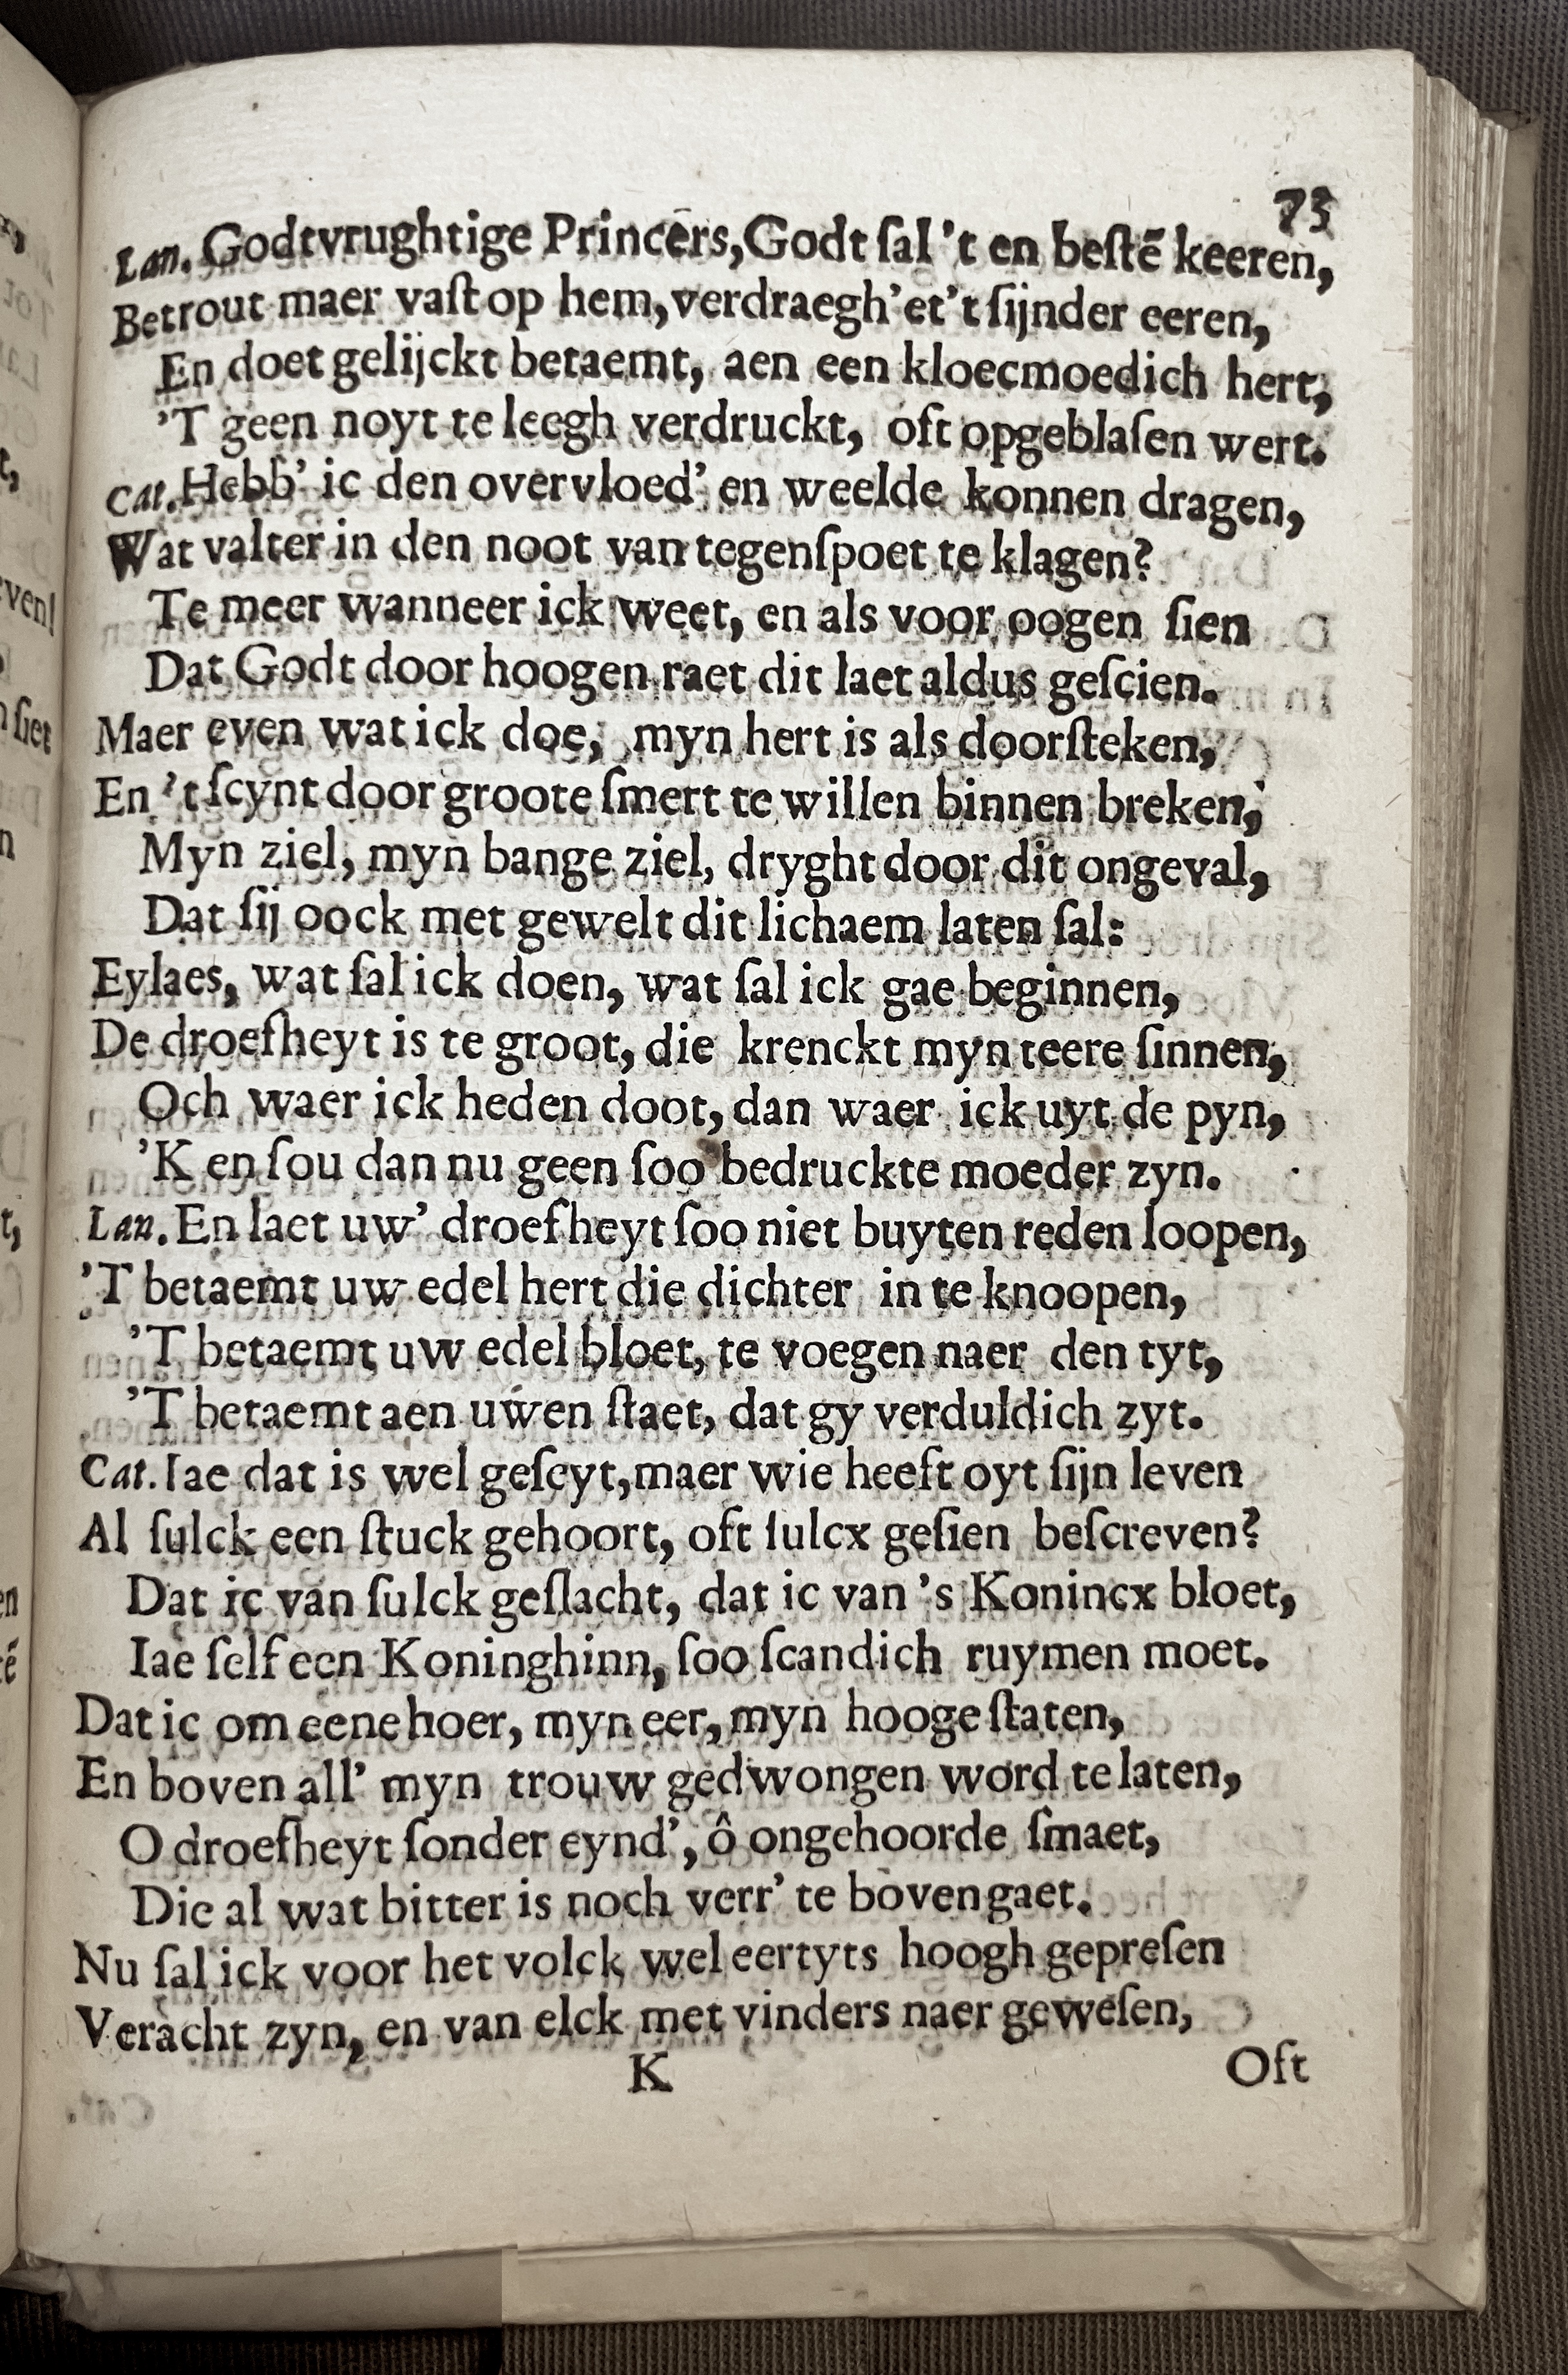 73
Lan. Godtvrughtige Princers, Godt ſal 't en beſtē keeren,
Betrout maer vaſt op hem, verdraegh'et 't ſijnder eeren,
En doet gelijckt betaemt, aen een kloecmoedich hert,
'T geen noyt te leegh verdruckt, oft opgeblaſen wert.
Cat. Hebb' ic den overvloed' en weelde konnen dragen,
Wat valter in den noot van tegenſpoet te klagen?
Te meer wanneer ick weet, en als voor oogen ſien
Dat Godt door hoogen raet dit laet aldus geſcien.
Maer even wat ick doe, myn hert is als doorſteken,
En 't ſcynt door groote ſmert te willen binnen breken,
Myn ziel, myn bange ziel, dryght door dit ongeval,
Dat ſij oock met gewelt dit lichaem laten ſal:
Eylaes, wat ſal ick doen, wat ſal ick gae beginnen,
De droefheyt is te groot, die krenckt myn teere ſinnen,
Och waer ick heden doot, dan waer ick uyt de pyn,
'K en ſou dan nu geen ſoo bedruckte moeder zyn.
Lan. En laet uw' droefheyt ſoo niet buyten reden loopen,
'T betaemt uw edel hert die dichter in te knoopen,
'T betaemt uw edel bloet, te voegen naer den tyt,
'T betaemt aen uwen ſtaet, dat gy verduldich zyt.
Cat. Iae dat is wel geſeyt, maer wie heeft oyt ſijn leven
Al ſulck een ſtuck gehoort, oft ſulcx geſien beſcreven?
Dat ic van ſulck geſlacht, dat ic van 's Konincx bloet,
Iae ſelf een Koninghinn, ſoo ſcandich ruymen moet.
Dat ic om eene hoer, myn eer, myn hooge ſtaten,
En boven all' myn trouw gedwongen word te laten,
O droefheyt ſonder eynd', ô ongehoorde ſmaet,
Die al wat bitter is noch verr' te boven gaet.
Nu ſal ick voor het volck wel eertyts hoogh gepreſen
Veracht zyn, en van elck met vinders naer geweſen,
K
Oft